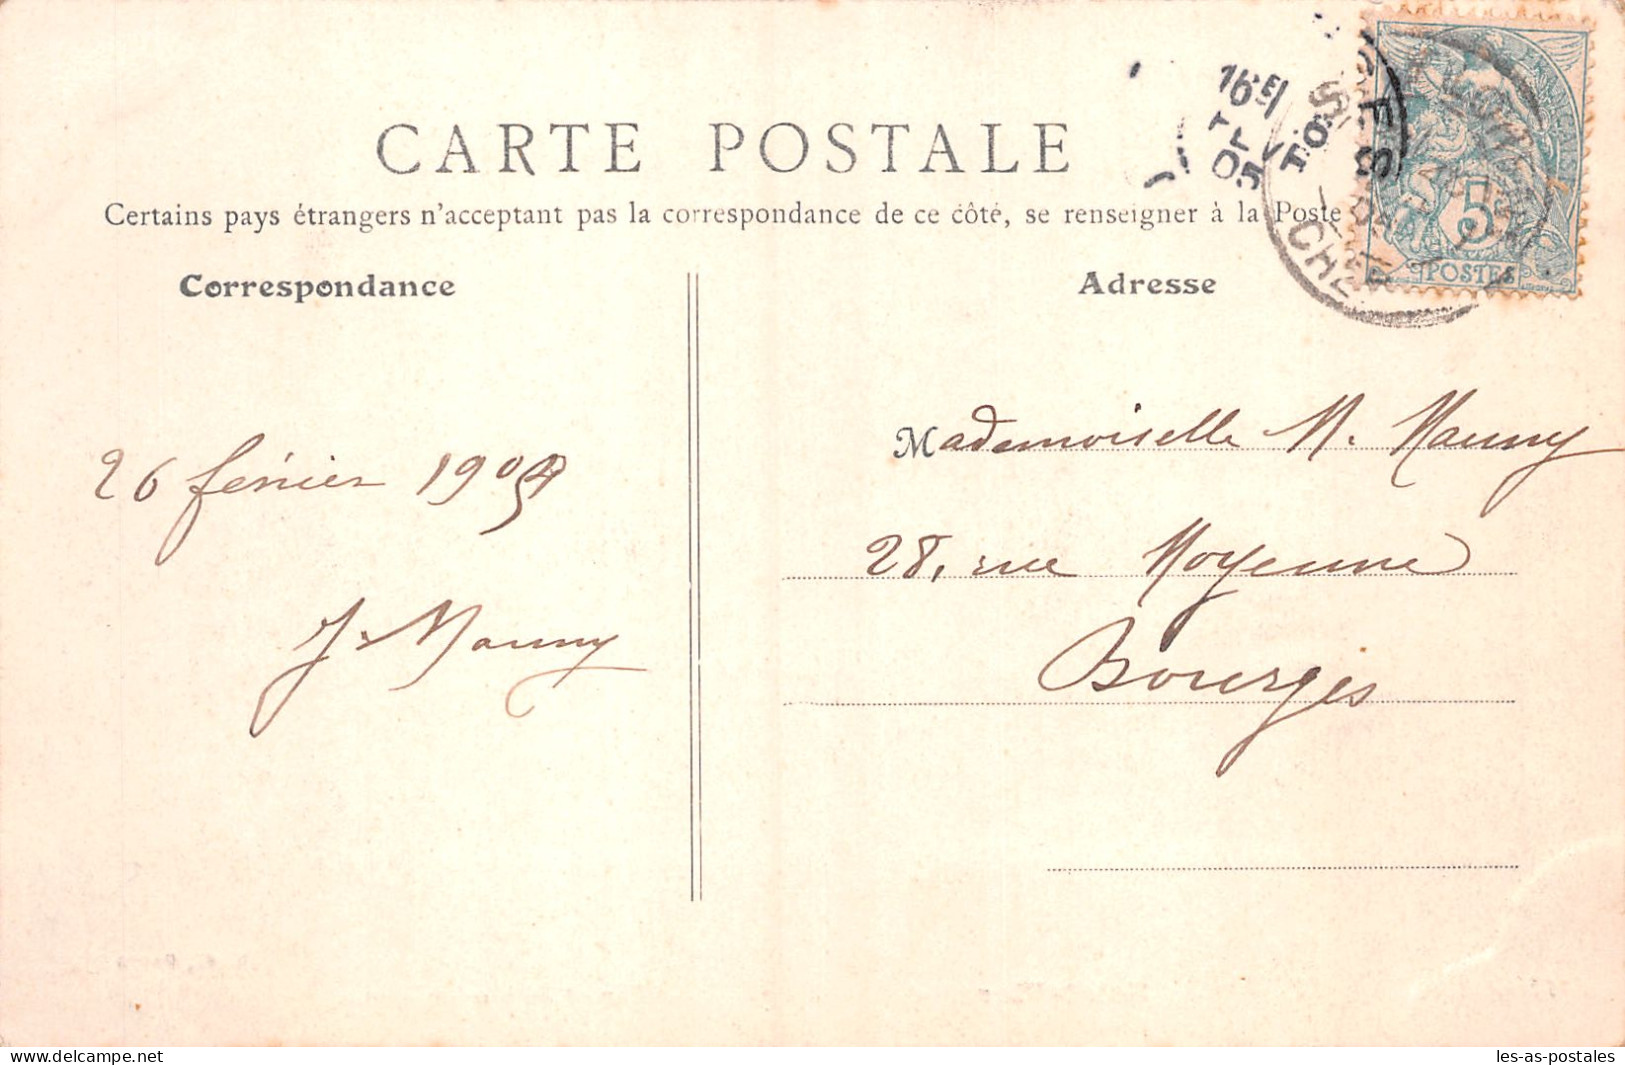 CARTE POSTALE
Certains pays étrangers n'acceptant pas la correspondance de ce côté, se renseigner à la Poste
Correspondance
Adresse
5
POSTES
CHER
26 février 190
J. Mauny
Mademoiselle M. Mauny
28, rue Moyenne
Bourges
www.delcampe.net
les-as-postales